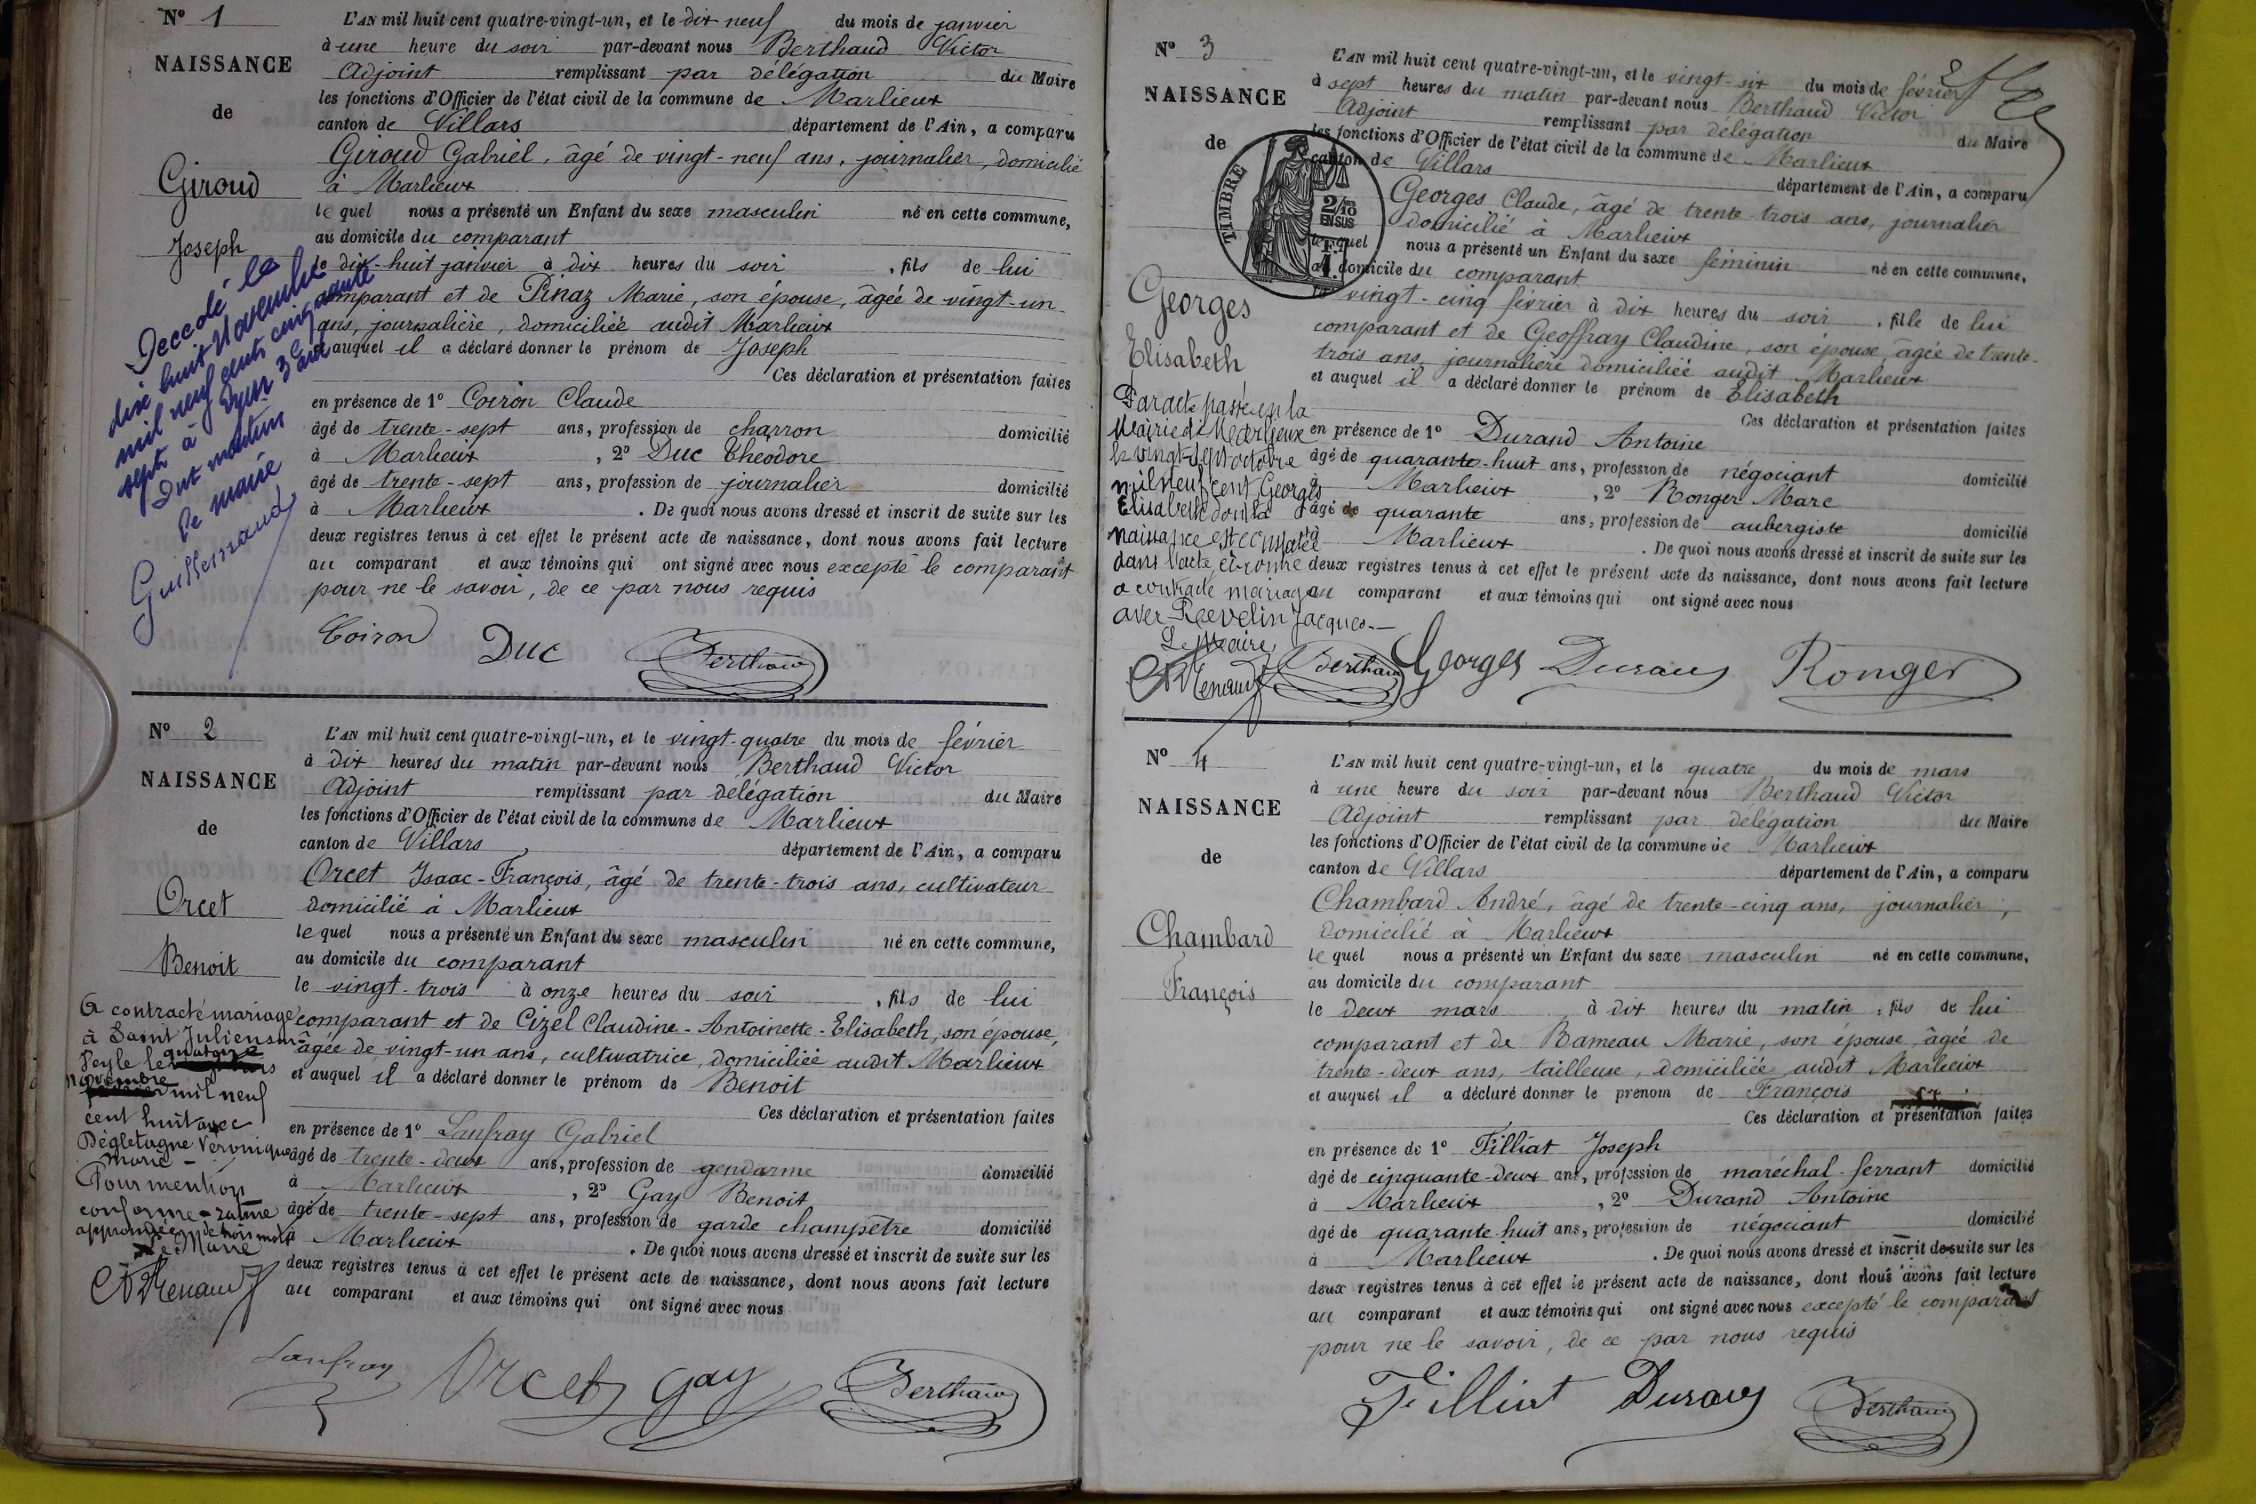 Nº 1
NAISSANCE
de
Giroud
Joseph
Decedé le
dix huit Novembre
mil neuf cent cinquante
sept à
Dut matin
Le maire
Guillemaud
L'AN mil huit cent quatre-vingt-un, et le dix neuf du mois de janvier
à une heure du soir par-devant nous Berthaud Victor
Adjoint remplissant par délégation du Maire
les fonctions d'Officier de l'état civil de la commune de Marlieux
canton de Villars département de l'Ain, a comparu
Giroud Gabriel, âgé de vingt-neuf ans, journalier, domicilié
à Marlieux
lequel nous a présenté un Enfant du sexe masculin né en cette commune,
au domicile du comparant
le dix-huit janvier à dix heures du soir, fils de lui
comparant et de Pinaz Marie, son épouse, âgée de vingt-un
ans, journalière, domiciliée audit Marlieux
et auquel il a déclaré donner le prénom de Joseph
Ces déclaration et présentation faites
en présence de 1º Coiron Claude
âgé de trente-sept ans, profession de charron domicilié
à Marlieux, 2º Duc Théodore
âgé de trente-sept ans, profession de journalier domicilié
à Marlieux. De quoi nous avons dressé et inscrit de suite sur les
deux registres tenus à cet effet le présent acte de naissance, dont nous avons fait lecture
au comparant et aux témoins qui ont signé avec nous excepté le comparant
pour ne le savoir, de ce par nous requis
Coiron Duc Berthaud
Nº 2
NAISSANCE
de
Orcet
Benoit
A contracté mariage
à Saint Julien sur
Veyle le quatorze
novembre mil neuf
cent huit avec
Dégletagne Véronique
Marie -
Pour mention
conforme
Le Maire
L'AN mil huit cent quatre-vingt-un, et le vingt-quatre du mois de février
à dix heures du matin par-devant nous Berthaud Victor
Adjoint remplissant par délégation du Maire
les fonctions d'Officier de l'état civil de la commune de Marlieux
canton de Villars département de l'Ain, a comparu
Orcet Isaac-François, âgé de trente-trois ans, cultivateur
domicilié à Marlieux
lequel nous a présenté un Enfant du sexe masculin né en cette commune,
au domicile du comparant
le vingt-trois à onze heures du soir, fils de lui
comparant et de Cizel Claudine-Antoinette-Elisabeth, son épouse,
âgée de vingt-un ans, cultivatrice, domiciliée audit Marlieux
et auquel il a déclaré donner le prénom de Benoit
Ces déclaration et présentation faites
en présence de 1º Lanfray Gabriel
âgé de trente-deux ans, profession de gendarme domicilié
à Marlieux, 2º Gay Benoit
âgé de trente-sept ans, profession de garde champêtre domicilié
à Marlieux. De quoi nous avons dressé et inscrit de suite sur les
deux registres tenus à cet effet le présent acte de naissance, dont nous avons fait lecture
au comparant et aux témoins qui ont signé avec nous
Lanfray Orcet Gay Berthaud
Nº 3
NAISSANCE
de
TIMBRE
2/10
EN SUS
Georges
Elisabeth
Par acte passé en la
Mairie de Marlieux
le vingt-sept octobre
mil neuf cent Georges
Elisabeth dont la
naissance est constatée
dans l'acte ci-contre
a contracté mariage
avec Revelin Jacques.-
Le Maire
L'AN mil huit cent quatre-vingt-un, et le vingt-six du mois de février
à sept heures du matin par-devant nous Berthaud Victor
Adjoint remplissant par délégation du Maire
les fonctions d'Officier de l'état civil de la commune de Marlieux
canton de Villars département de l'Ain, a comparu
Georges Claude, âgé de trente-trois ans, journalier
domicilié à Marlieux
lequel nous a présenté un Enfant du sexe féminin né en cette commune,
au domicile du comparant
le vingt-cinq février à dix heures du soir, fille de lui
comparant et de Geoffray Claudine, son épouse, âgée de trente-
trois ans, journalière domiciliée audit Marlieux
et auquel il a déclaré donner le prénom de Elisabeth
Ces déclaration et présentation faites
en présence de 1º Durand Antoine
âgé de quarante-huit ans, profession de négociant domicilié
à Marlieux, 2º Ronger Marc
âgé de quarante ans, profession de aubergiste domicilié
à Marlieux. De quoi nous avons dressé et inscrit de suite sur les
deux registres tenus à cet effet le présent acte de naissance, dont nous avons fait lecture
au comparant et aux témoins qui ont signé avec nous
Berthaud Georges Durand Ronger
Nº 4
NAISSANCE
de
Chambard
François
L'AN mil huit cent quatre-vingt-un, et le quatre du mois de mars
à une heure du soir par-devant nous Berthaud Victor
Adjoint remplissant par délégation du Maire
les fonctions d'Officier de l'état civil de la commune de Marlieux
canton de Villars département de l'Ain, a comparu
Chambard André, âgé de trente-cinq ans, journalier,
domicilié à Marlieux
lequel nous a présenté un Enfant du sexe masculin né en cette commune,
au domicile du comparant
le deux mars à dix heures du matin, fils de lui
comparant et de Rameau Marie, son épouse, âgée de
trente-deux ans, tailleuse, domiciliée audit Marlieux
et auquel il a déclaré donner le prénom de François
Ces déclaration et présentation faites
en présence de 1º Filliat Joseph
âgé de cinquante-deux ans, profession de maréchal-ferrant domicilié
à Marlieux, 2º Durand Antoine
âgé de quarante-huit ans, profession de négociant domicilié
à Marlieux. De quoi nous avons dressé et inscrit de suite sur les
deux registres tenus à cet effet le présent acte de naissance, dont nous avons fait lecture
au comparant et aux témoins qui ont signé avec nous excepté le comparant
pour ne le savoir, de ce par nous requis
Filliat Durand Berthaud